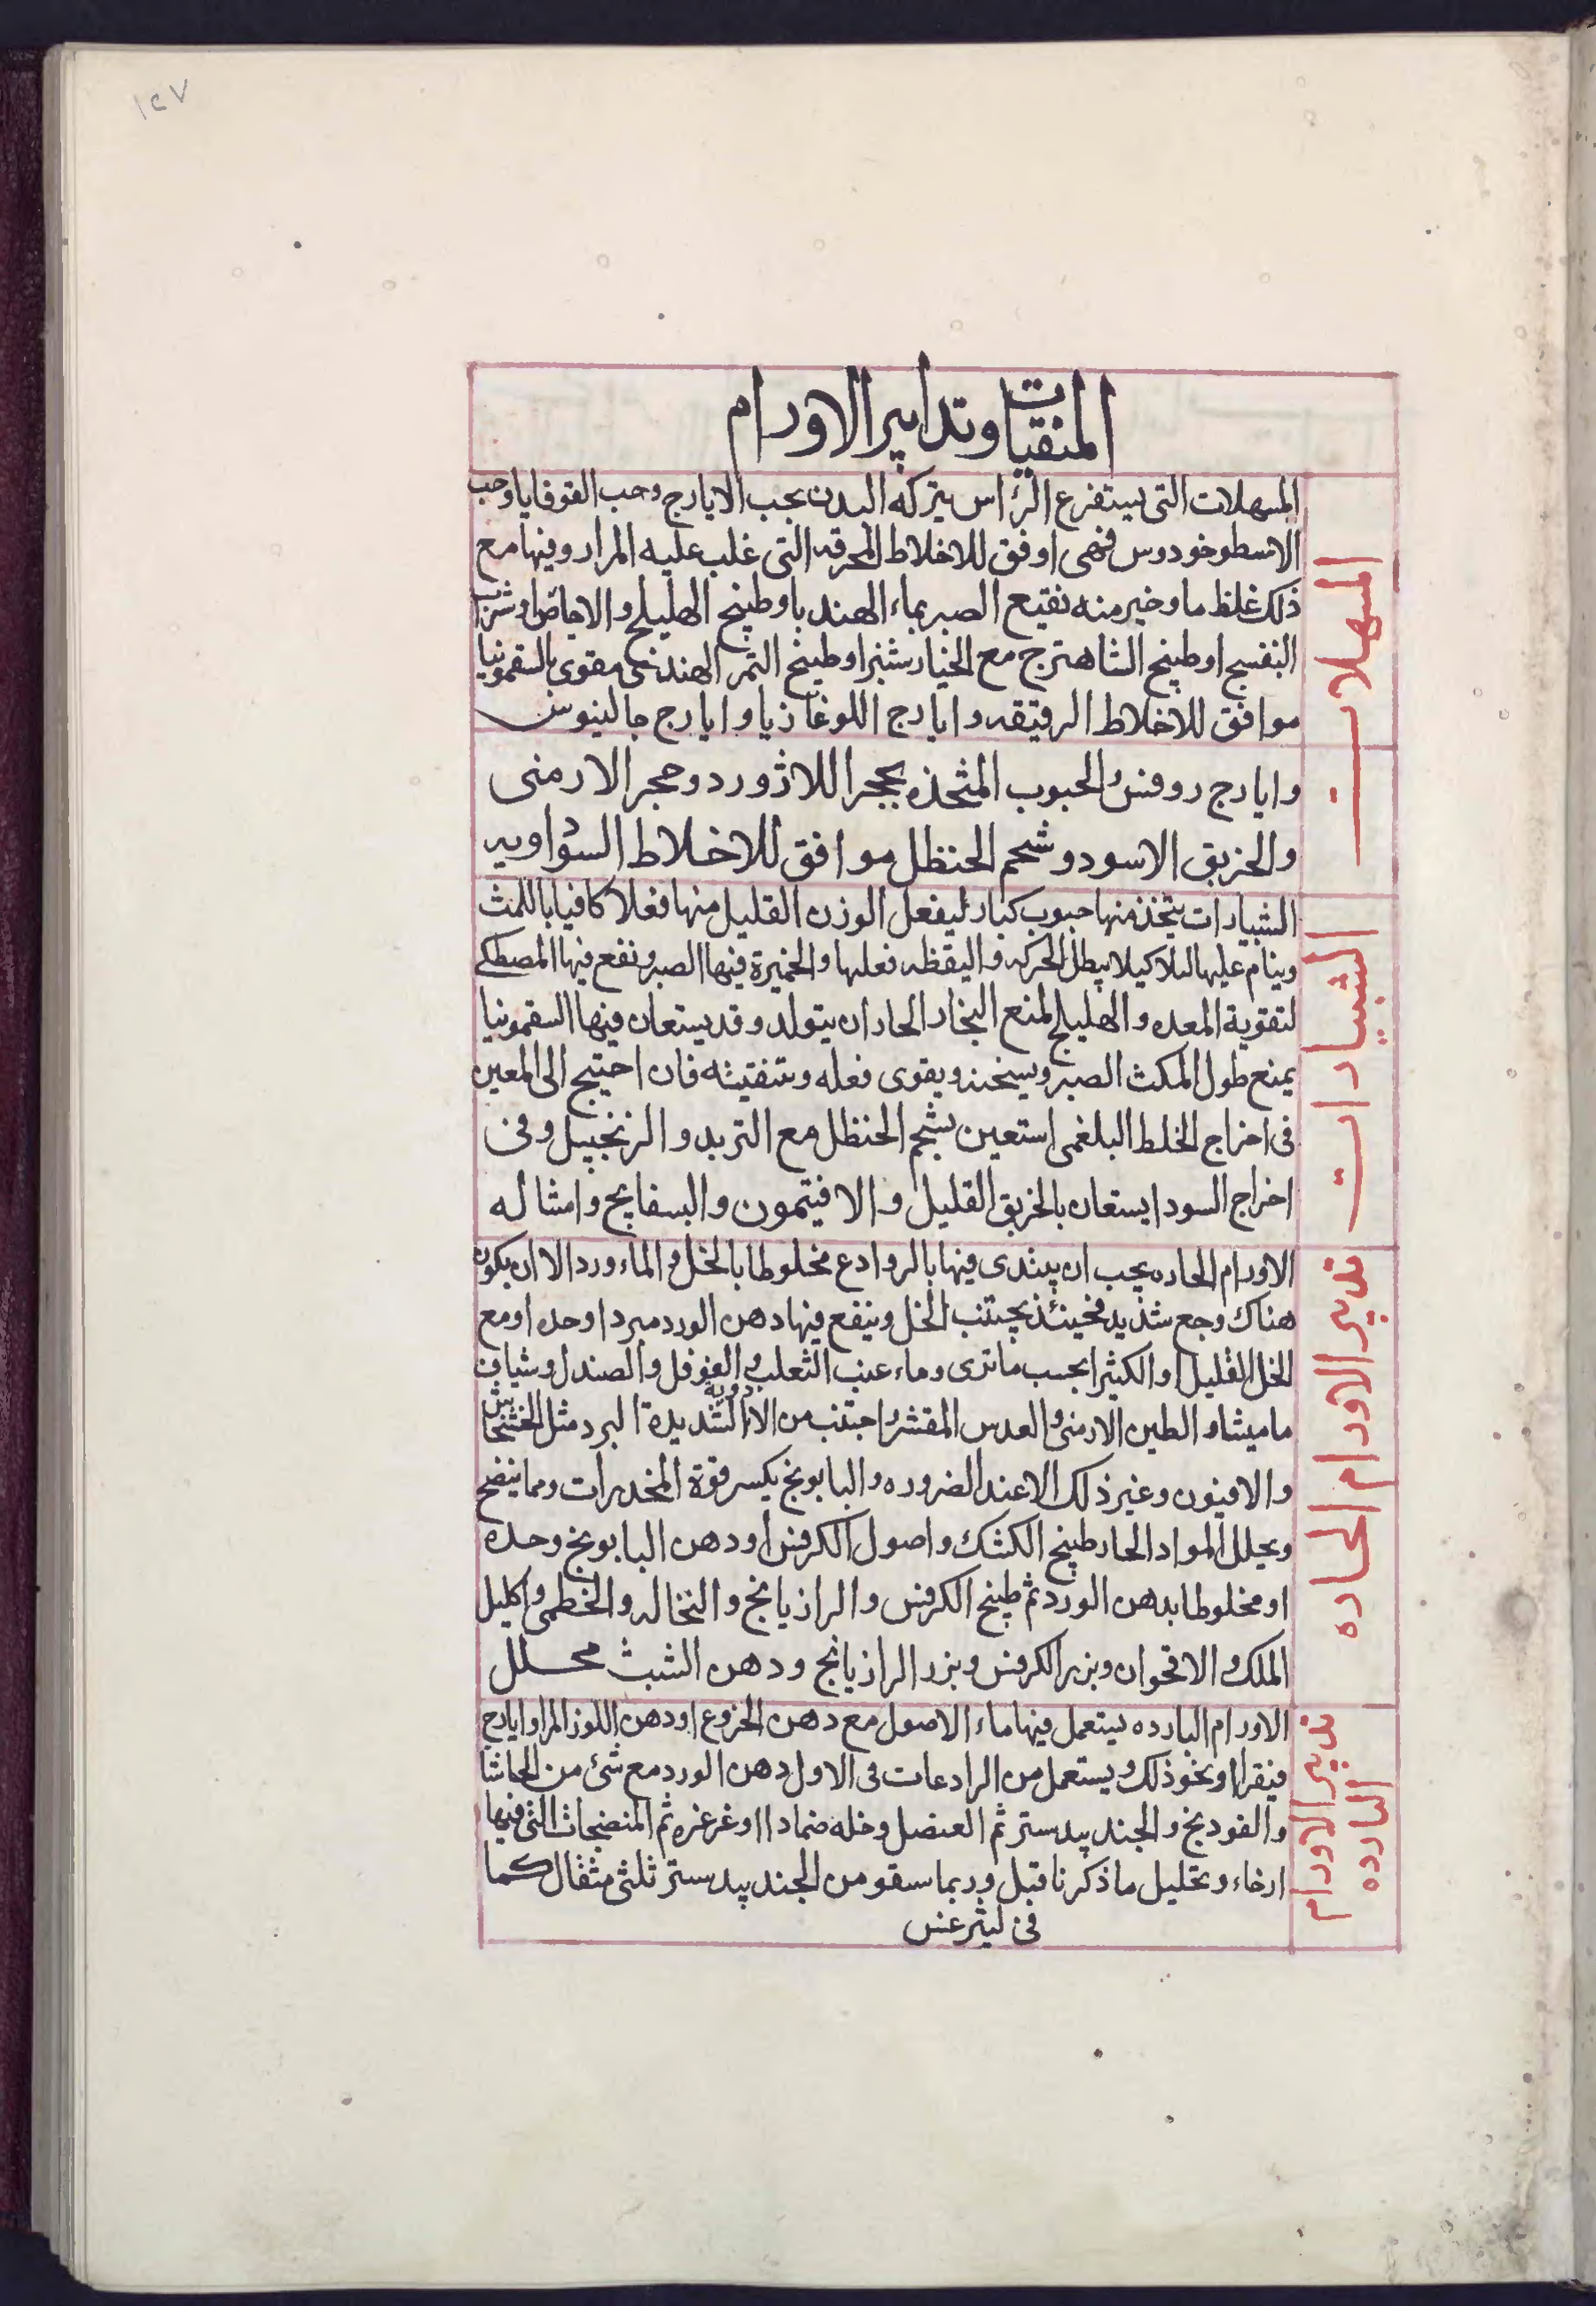 ١٢٧
المنقيات وتدابير الاورام
المسهلات
المسهلات التى يستفرغ الراس بتركه البدن بحب الايارج وحب القوقايا وحب
الاسطوخودوس فهى اوفق للاخلاط المحرقه التى غلب عليه المرار وفيها مع
ذلك غلظ ما وخير منه نقيع الصبر بماء الهندبا وطبيخ الهليلج والاجاص او شراب
البنفسج او طبيخ الشاهترج مع الخيارشنبر او طبيخ التمر الهندى مقوى بالسقمونيا
موافق للاخلاط الرقيقه وايارج اللوغاذيا وايارج جالينوس
وايارج روفس والحبوب المتخذه بحجر اللاژورد وحجر الارمنى
والخربق الاسود وشحم الحنظل موافق للاخلاط السوداويه
الشبيارات
الشبيارات يتخذ منها حبوب كبار ليفعل الوزن القليل منها فعلا كافيا باللمث
وينام عليها ليلا كيلا يبطل الحركه واليقظه فعلها والخميرة فيها الصبر ونفع فيها المصطكى
لتقوية المعده والهليلج لمنع البخار الحار ان يتولد وقد يستعان فيها السقمونيا
يمنع طول المكث الصبر ويسخنه ويقوى فعله وتنفيثه فان احتيج الى المعين
فى اخراج الخلط البلغمى استعين بشحم الحنظل مع التربد والزنجبيل وفى
اخراج السودا يستعان بالخربق القليل والافيتمون والبسفايج وامثاله
تدبير الاورام الحاره
الاورام الحاره يجب ان يبتدى فيها بالروادع مخلوطا بالخل والماء ورد الا ان يكون
هناك وجع شديد فحينئذ يجتنب الخل وينفع فيها دهن الورد مبردا وحده او مع
الخل القليل او الكثير بحسب ما ترى وماء عنب الثعلب والفوفل والصندل وشياف
ماميثا والطين الارمنى والعدس المقشر واجتنب من الادوية الشديدة البرد مثل الخشخاش
والافيون وغير ذلك الا عند الضروره والبابونج يكسر قوة المخدرات ومما ينضج
ويحلل المواد الحار طبيخ الكشك واصول الكرفس او دهن البابونج وحده
او مخلوطا بدهن الورد ثم طبيخ الكرفس والرازيانج والنخاله والخطمى واكليل
الملك والاقحوان وبزر الكرفس وبزر الرازيانج ودهن الشبث محلل
تدبير الاورام البارده
الاورام البارده يستعمل فيها ماء الاصول مع دهن الخروع او دهن اللوز المر او ايارج
فيقرا او نحو ذلك ويستعمل من الرادعات فى الاول دهن الورد مع شئ من الحاشا
والفودنج والجندبيدستر ثم العنصل وخله ضمادا او غرغره ثم المنضجات التى فيها
ارخاء وتحليل ما ذكرنا قبل وربما سقو من الجندبيدستر ثلثى مثقال كما
فى ليثرغس